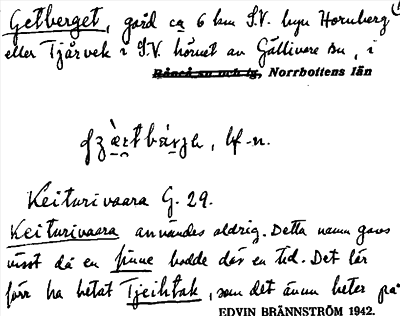 Getberget, gård ca 6 km S.V. byn Hornberg
eller Tjårvek i S.V. hörnet av Gällivare sn, i
Norrbottens län
lf-n.
Keiturivaara G. 29.
Keiturivaara användes aldrig. Detta namn gavs
visst då en finne bodde där en tid. Det lär
förr ha hetat Tjeihtak, som det ännu heter på
EDVIN BRÄNNSTRÖM 1942.